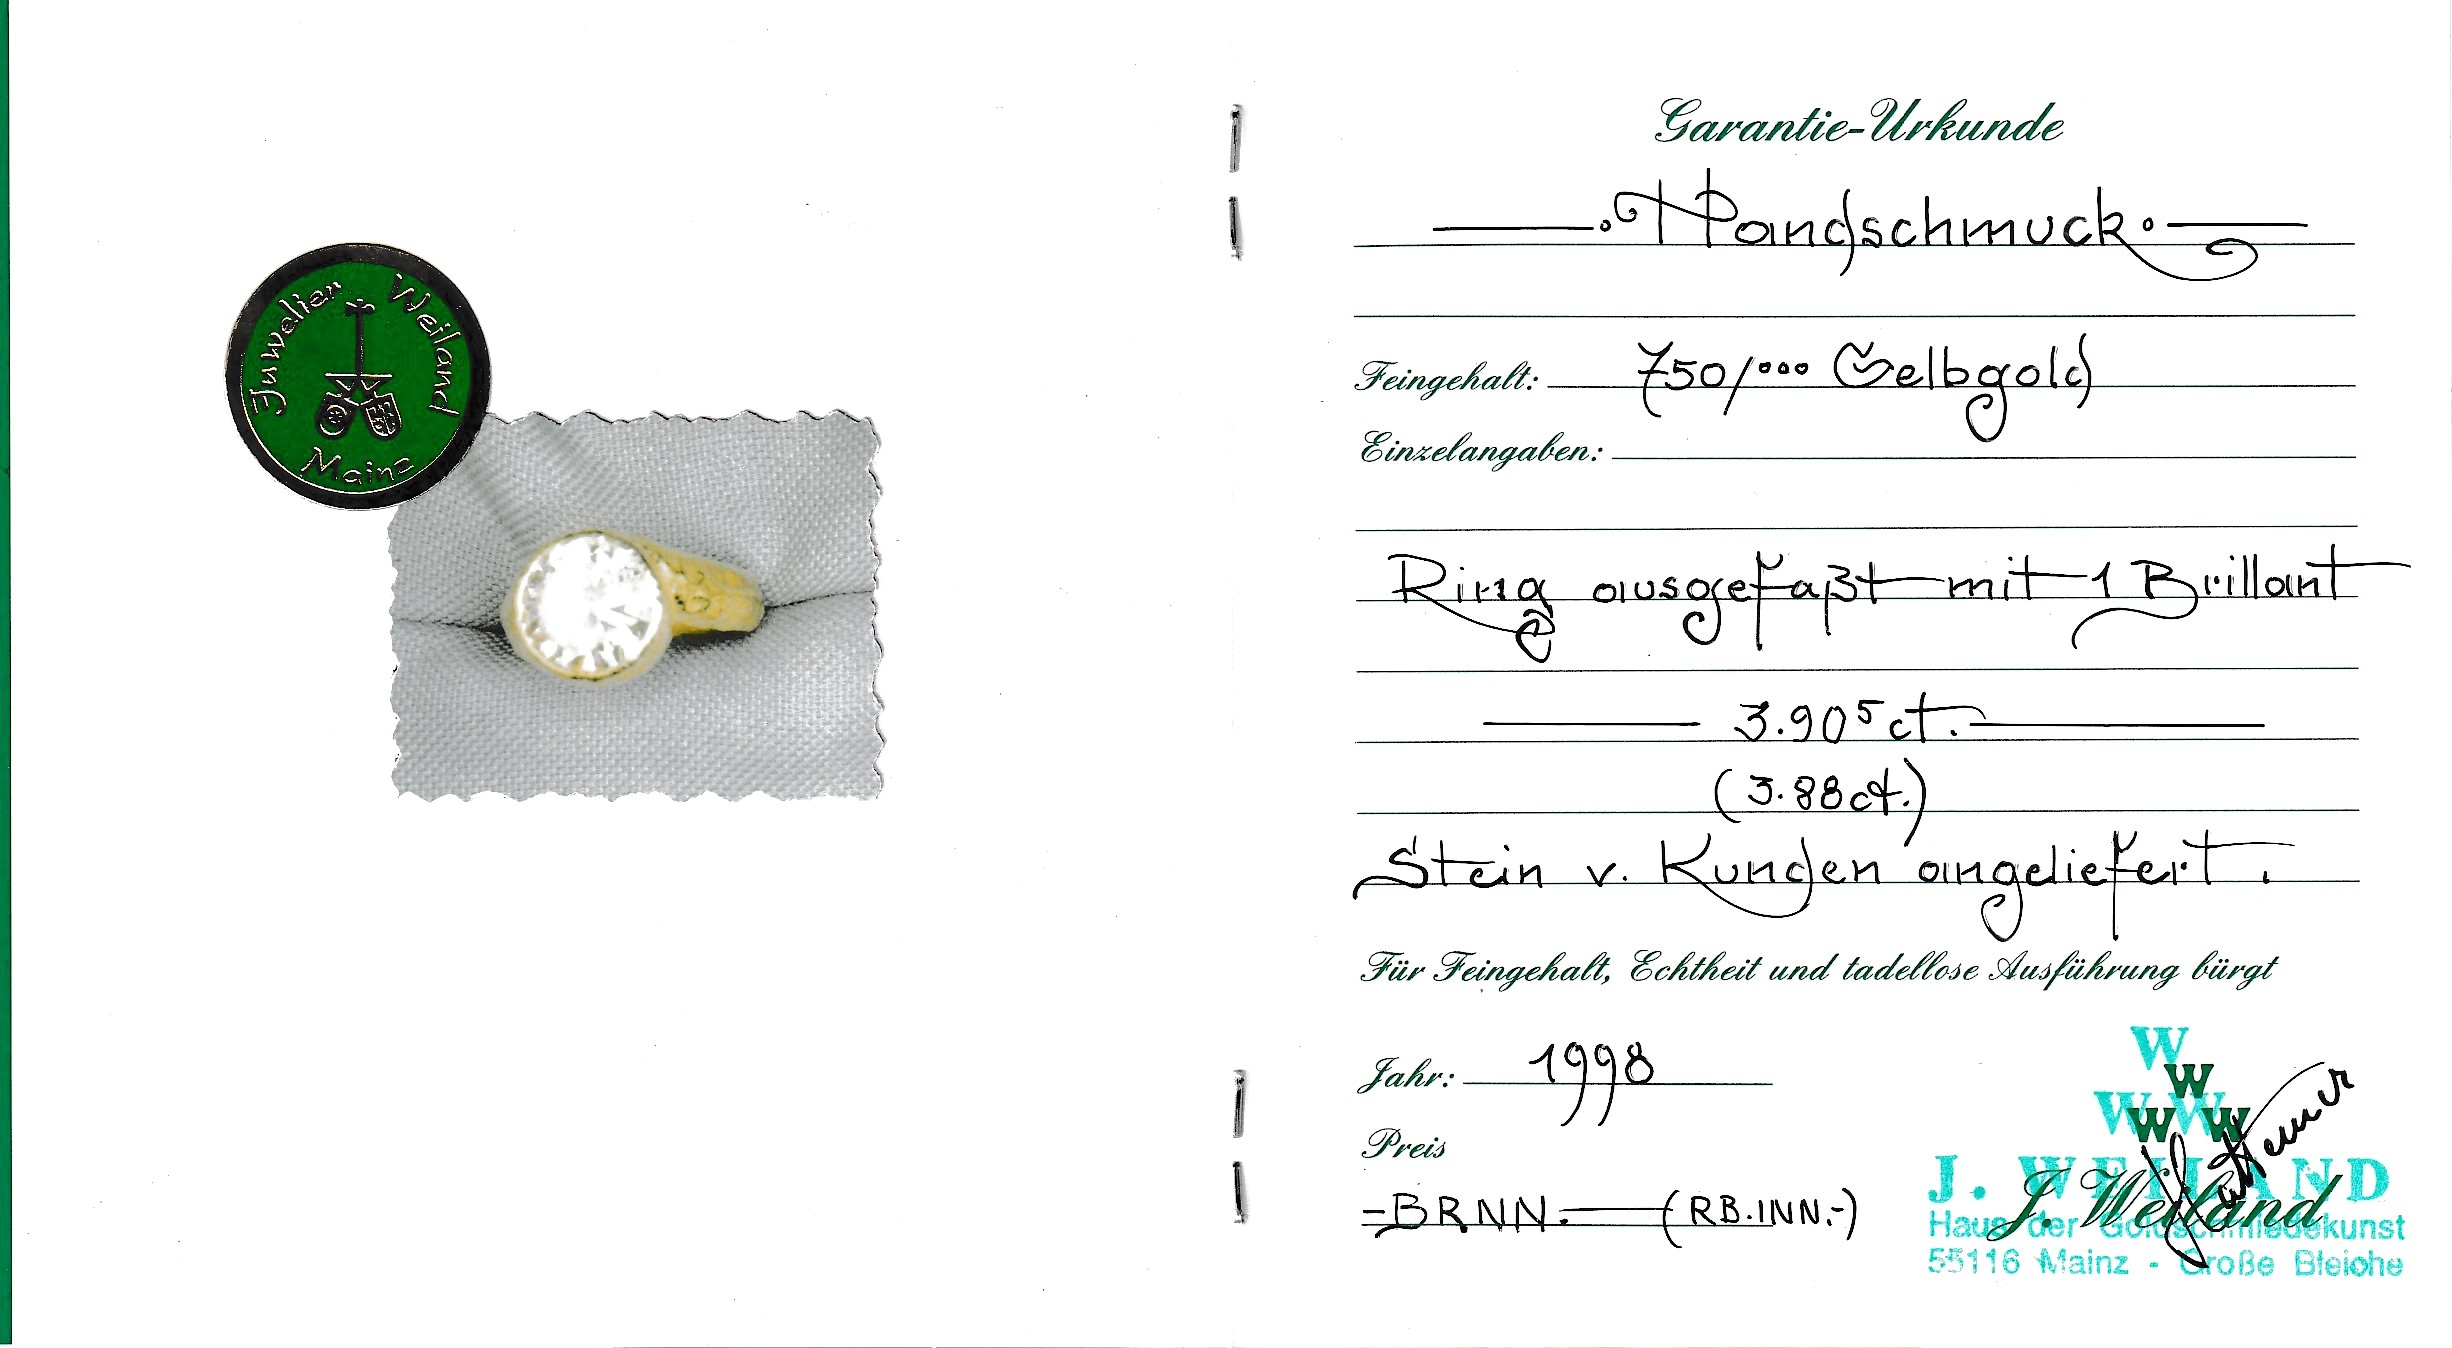 Juwelier Weiland
Mainz
Garantie-Urkunde
Handschmuck
Feingehalt: 750/ooo Gelbgold
Einzelangaben:
Ring ausgefaßt mit 1 Brillant
3.90⁵ ct.
(3.88 ct.)
Stein v. Kunden angeliefert.
Für Feingehalt, Echtheit und tadellose Ausführung bürgt
Jahr: 1998
Preis
-BRNN. (RB.INN.-)
W
W
W W W
W W
J. WEILAND
J. Weiland
Haus der Goldschmiedekunst
55116 Mainz - Große Bleiche